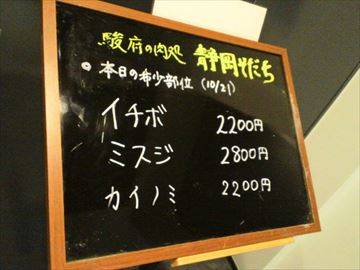 駿府の肉処 静岡そだち
○ 本日の希少部位 (10/21)
イチボ 2200円
ミスジ 2800円
カイノミ 2200円